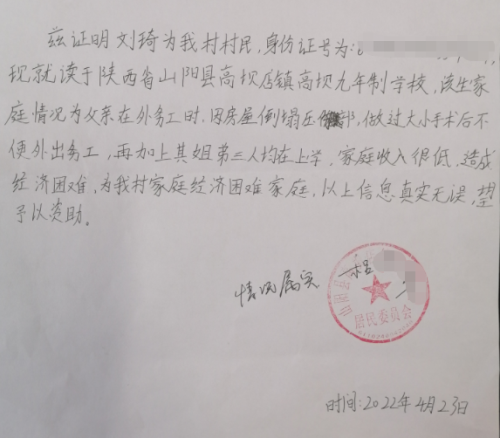 兹证明刘琦为我村村民,身份证号为:
现就读于陕西省山阳县高坝店镇高坝九年制学校,该生家
庭情况为父亲在外务工时,因房屋倒塌压,做过大小手术后不
便外出务工,再加上其姐弟三人均在上学,家庭收入很低,造成
经济困难,为我村家庭经济困难家庭,以上信息真实无误,望
予以资助。
情况属实
居民委员会
时间:2022年4月23日